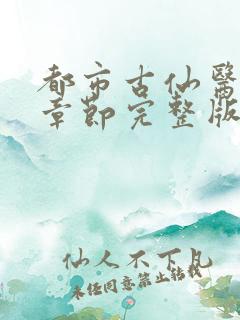 都市古仙醫
章節完整版
仙人不下凡
未经同意禁止转载